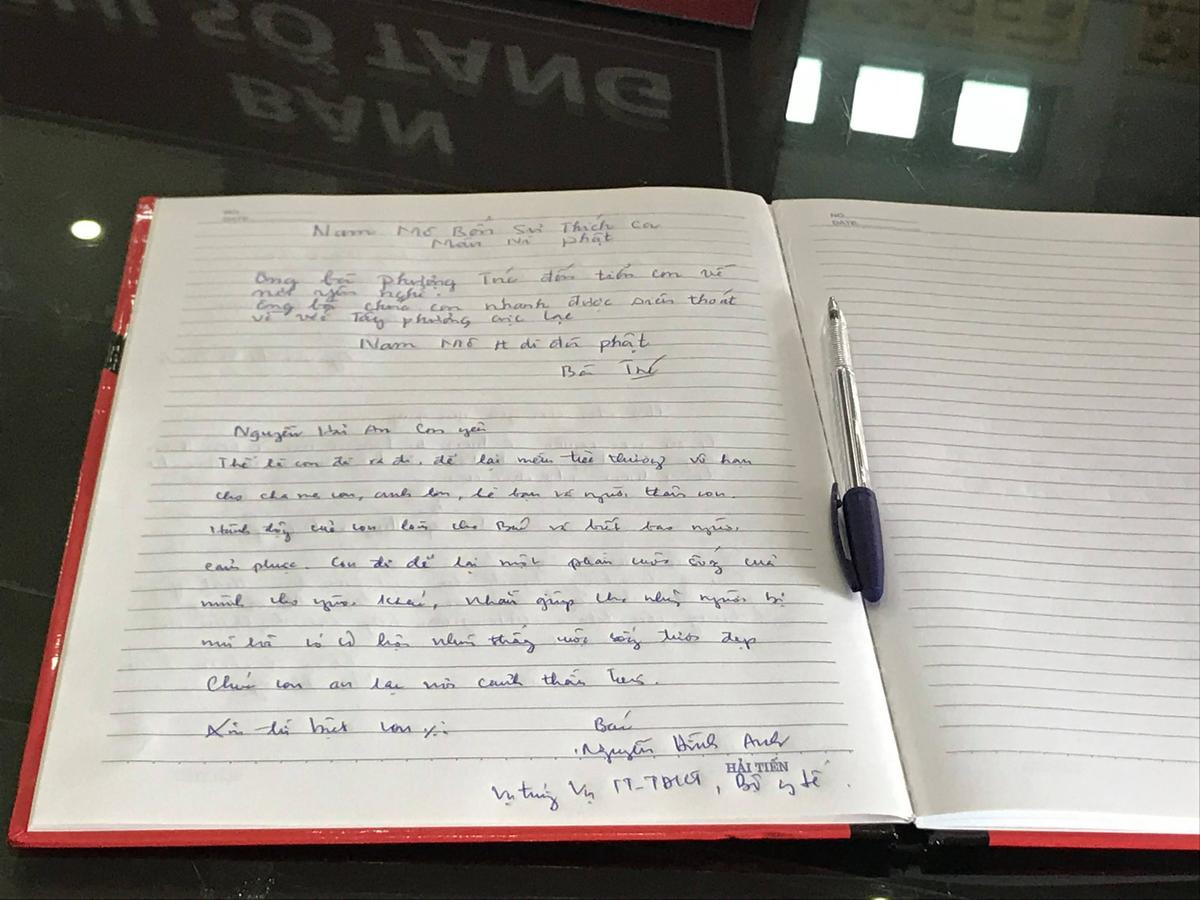 GHI SỔ TANG
BÀN
NO.
DATE
Nam Mô Bổn Sư Thích Ca
Mâu Ni phật
Ông bà phượng Trúc đón tiễn con về
nơi yên nghỉ.
ông bà chúc con nhanh được siêu thoát
về với Tây phương cực lạc
Nam Mô A di đà phật
Bà Trúc
Nguyễn Hải An Con yêu
Thế là con đã ra đi, để lại niềm tiếc thương vô hạn
cho cha mẹ con, anh con, bè bạn và người thân con.
Hành động của con làm cho Bác và biết bao người
cảm phục. Con đi để lại một phần cuộc sống của
mình cho người khác, nhằm giúp cho những người bị
mù loà có cơ hội nhìn thấy cuộc sống tươi đẹp
Chúc con an lạc nơi cảnh thần tiên.
Xin từ biệt con
Bác
Nguyễn Đình Anh
HẢI TIẾN
Vụ trưởng Vụ TT-TĐKT, Bộ y tế.
NO.
DATE